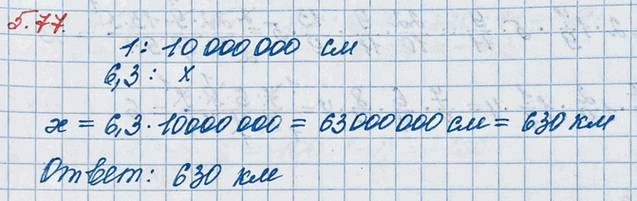 5.77.
1 : 10 000 000 см
6,3 : x
x = 6,3 · 10000 000 = 63 000 000 см = 630 км
Ответ: 630 км